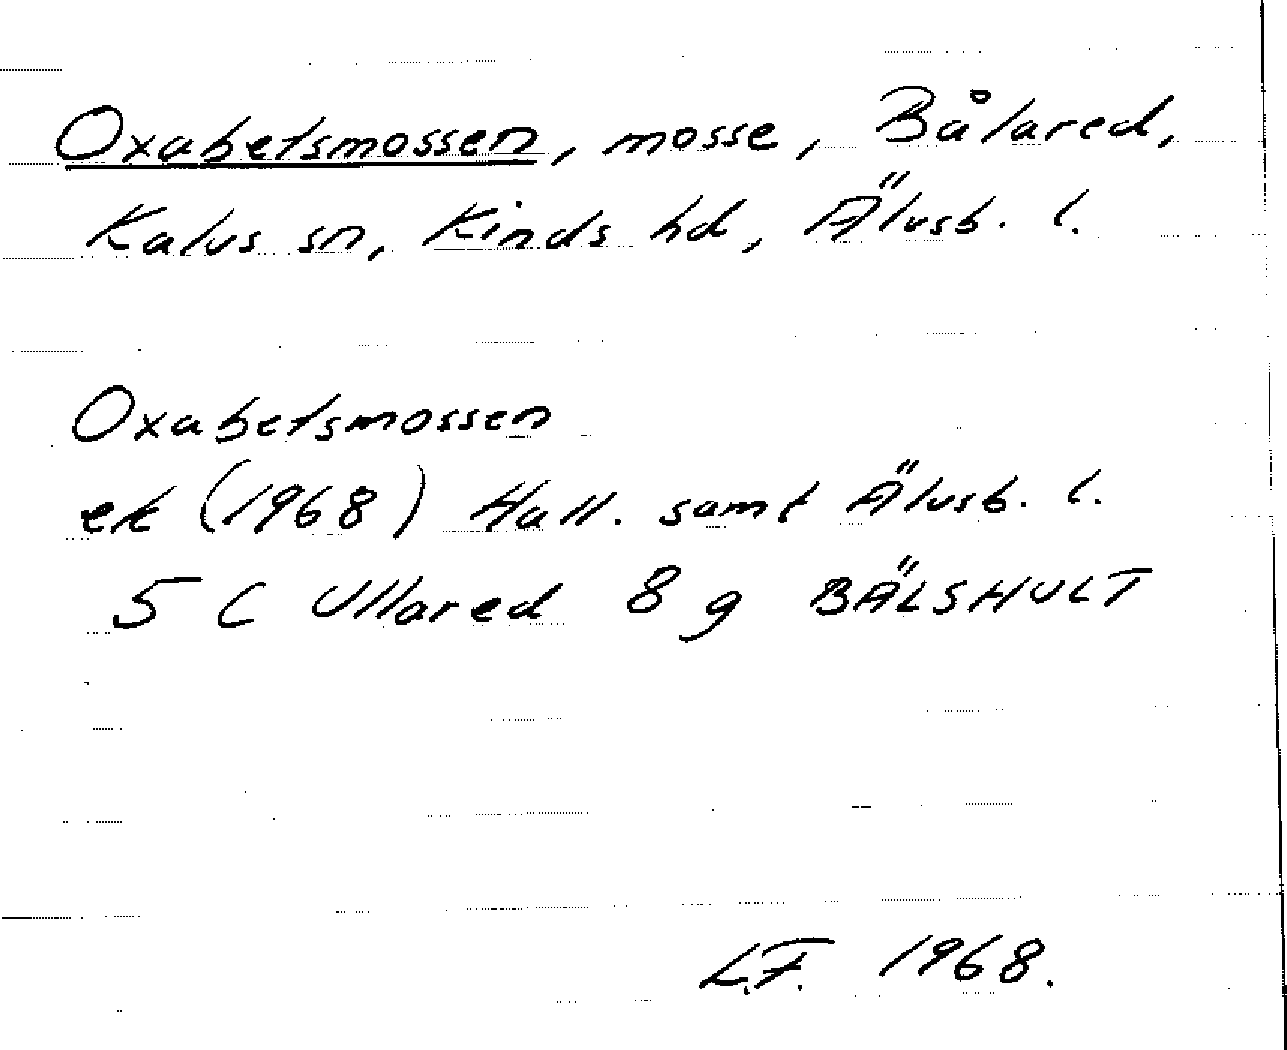 Oxabetsmossen, mosse, Bålared,
Kalvs sn, Kinds hd, Älvsb. l.
Oxabetsmossen
ek (1968) Hall. samt Älvsb. l.
5 C Ullared 8 g BÄLSHULT
L.F. 1968.